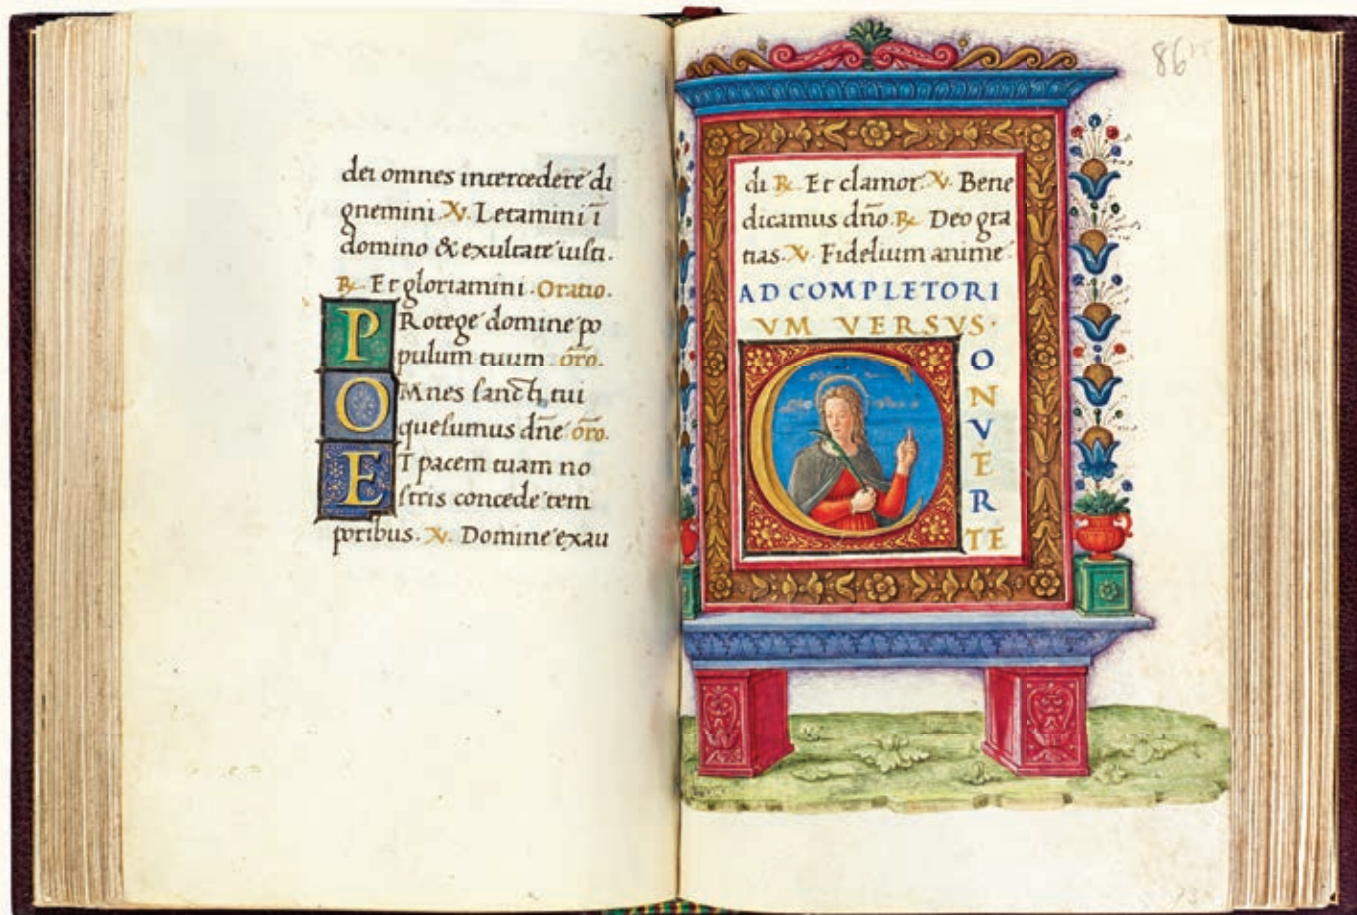 dei omnes intercedere di
gnemini ℣. Letamini ī
domino & exultate iusti.
℟. Et gloriamini. Oratio.
PRotege domine po
pulum tuum. or̄o.
OMnes sancti tui
quesumus dn̄e or̄o.
ET pacem tuam no
stris concede tem
poribus. ℣. Domine exau
86
di ℟. Et clamor. ℣. Bene
dicamus dn̄o. ℟. Deo gra
tias. ℣. Fidelium anime
AD COMPLETORI
VM VERSVS.
CONVERTE